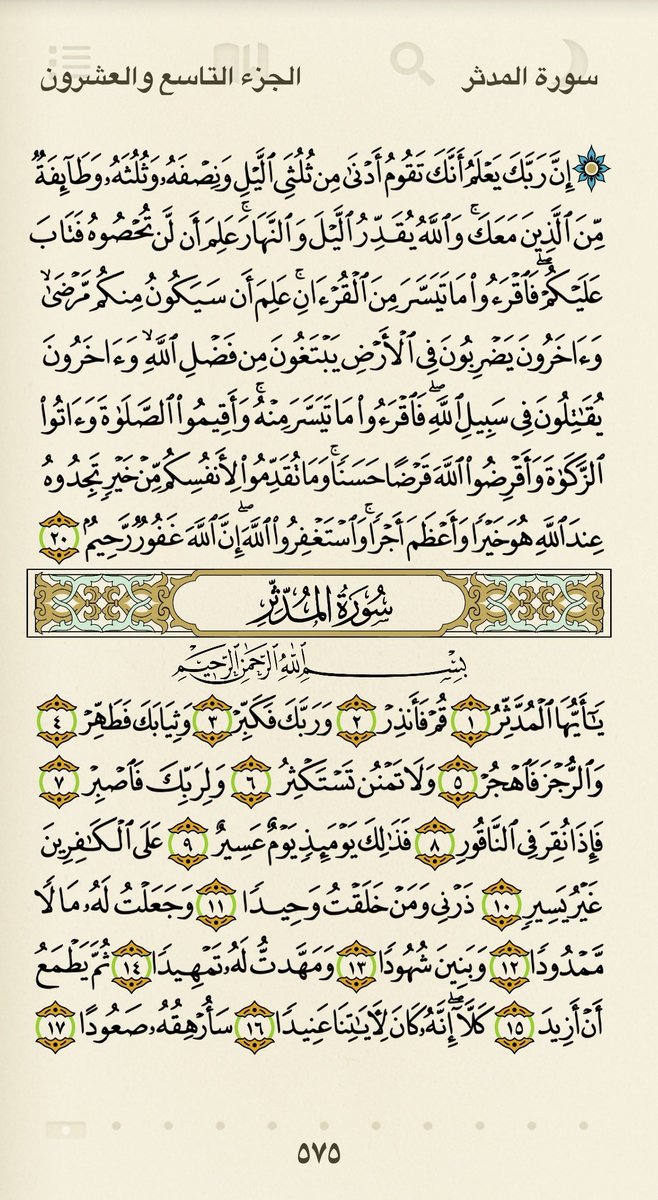 سورة المدثر
الجزء التاسع والعشرون
إِنَّ رَبَّكَ يَعْلَمُ أَنَّكَ تَقُومُ أَدْنَىٰ مِن ثُلُثَيِ ٱلَّيْلِ وَنِصْفَهُۥ وَثُلُثَهُۥ وَطَآئِفَةٌ
مِّنَ ٱلَّذِينَ مَعَكَ ۚ وَٱللَّهُ يُقَدِّرُ ٱلَّيْلَ وَٱلنَّهَارَ ۚ عَلِمَ أَن لَّن تُحْصُوهُ فَتَابَ
عَلَيْكُمْ ۖ فَٱقْرَءُوا۟ مَا تَيَسَّرَ مِنَ ٱلْقُرْءَانِ ۚ عَلِمَ أَن سَيَكُونُ مِنكُم مَّرْضَىٰ ۙ
وَءَاخَرُونَ يَضْرِبُونَ فِى ٱلْأَرْضِ يَبْتَغُونَ مِن فَضْلِ ٱللَّهِ ۙ وَءَاخَرُونَ
يُقَـٰتِلُونَ فِى سَبِيلِ ٱللَّهِ ۖ فَٱقْرَءُوا۟ مَا تَيَسَّرَ مِنْهُ ۚ وَأَقِيمُوا۟ ٱلصَّلَوٰةَ وَءَاتُوا۟
ٱلزَّكَوٰةَ وَأَقْرِضُوا۟ ٱللَّهَ قَرْضًا حَسَنًا ۚ وَمَا تُقَدِّمُوا۟ لِأَنفُسِكُم مِّنْ خَيْرٍ تَجِدُوهُ
عِندَ ٱللَّهِ هُوَ خَيْرًا وَأَعْظَمَ أَجْرًا ۚ وَٱسْتَغْفِرُوا۟ ٱللَّهَ ۖ إِنَّ ٱللَّهَ غَفُورٌ رَّحِيمٌۢ ٢٠
سُورَةُ المُدَّثِّرِ
بِسْمِ ٱللَّهِ ٱلرَّحْمَـٰنِ ٱلرَّحِيمِ
يَـٰٓأَيُّهَا ٱلْمُدَّثِّرُ ١ قُمْ فَأَنذِرْ ٢ وَرَبَّكَ فَكَبِّرْ ٣ وَثِيَابَكَ فَطَهِّرْ ٤
وَٱلرُّجْزَ فَٱهْجُرْ ٥ وَلَا تَمْنُن تَسْتَكْثِرُ ٦ وَلِرَبِّكَ فَٱصْبِرْ ٧
فَإِذَا نُقِرَ فِى ٱلنَّاقُورِ ٨ فَذَٰلِكَ يَوْمَئِذٍ يَوْمٌ عَسِيرٌ ٩ عَلَى ٱلْكَـٰفِرِينَ
غَيْرُ يَسِيرٍ ١٠ ذَرْنِى وَمَنْ خَلَقْتُ وَحِيدًا ١١ وَجَعَلْتُ لَهُۥ مَالًا
مَّمْدُودًا ١٢ وَبَنِينَ شُهُودًا ١٣ وَمَهَّدتُّ لَهُۥ تَمْهِيدًا ١٤ ثُمَّ يَطْمَعُ
أَنْ أَزِيدَ ١٥ كَلَّآ ۖ إِنَّهُۥ كَانَ لِـَٔايَـٰتِنَا عَنِيدًا ١٦ سَأُرْهِقُهُۥ صَعُودًا ١٧
٥٧٥